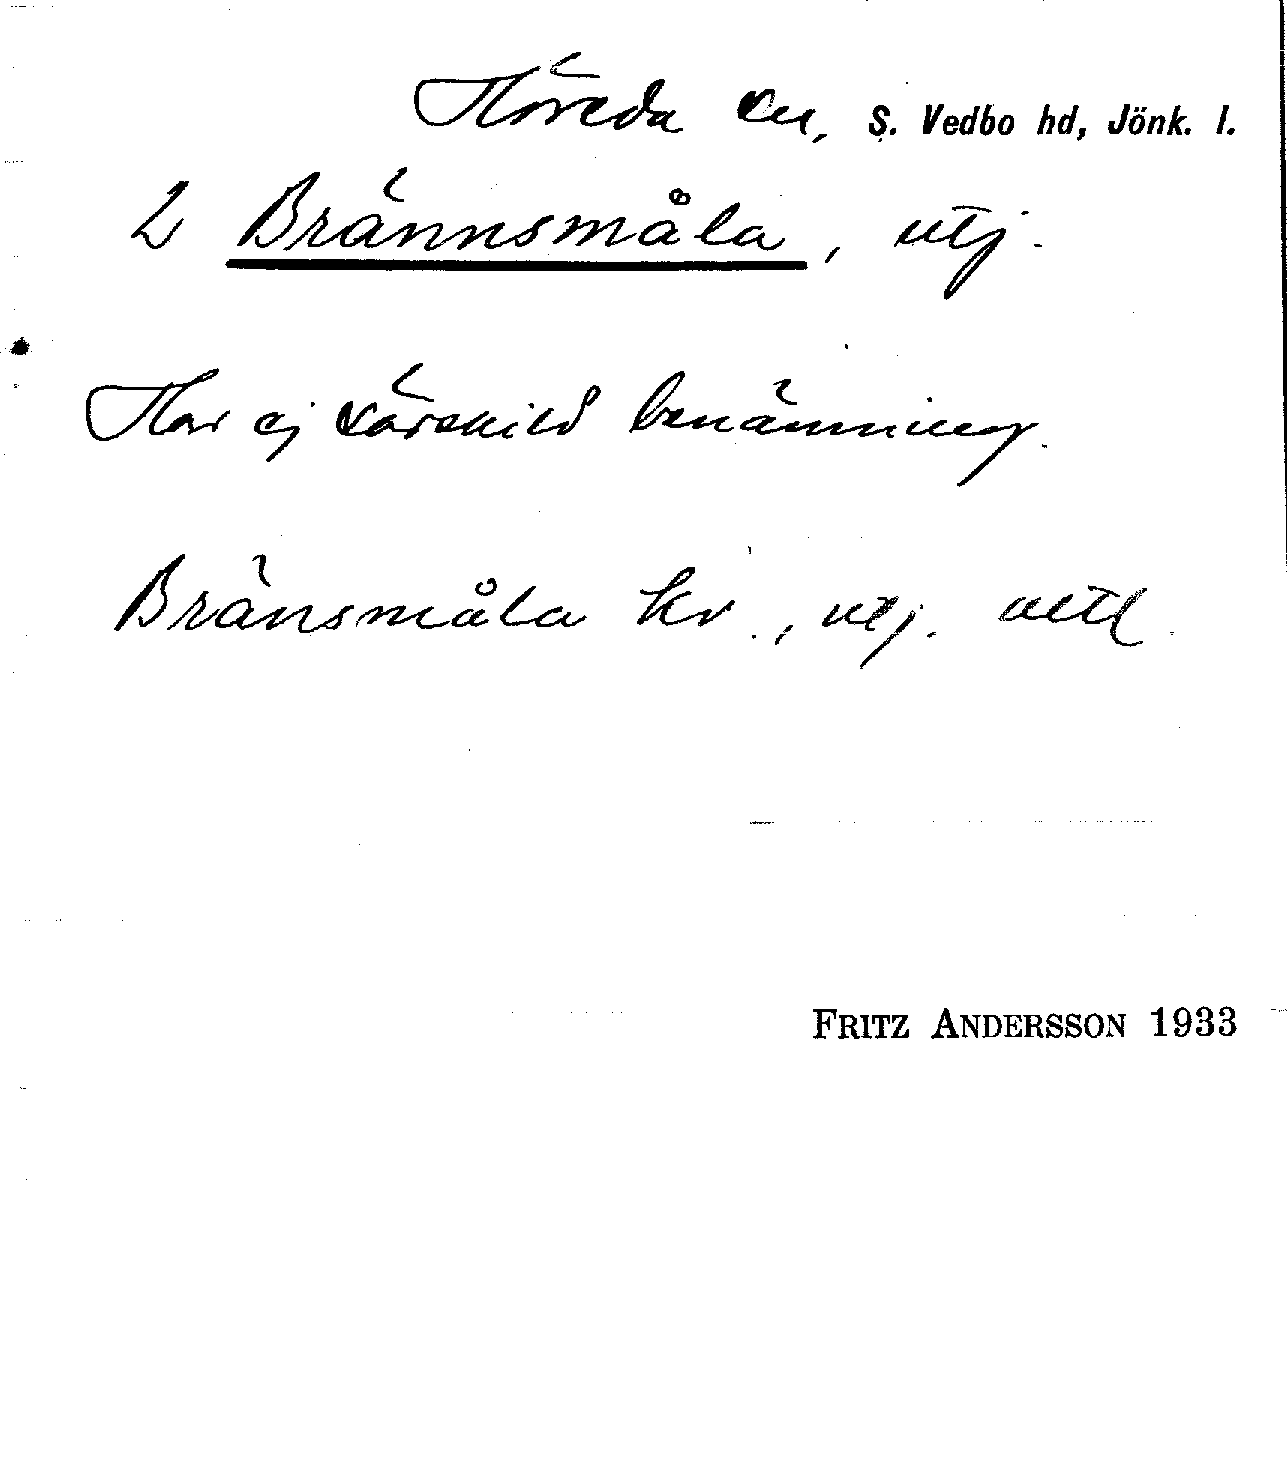 Höreda sn, S. Vedbo hd, Jönk. l.
2 Brännsmåla, utj.
Har ej särskild benämning.
Bränsmåla kv., utj.
FRITZ ANDERSSON 1933